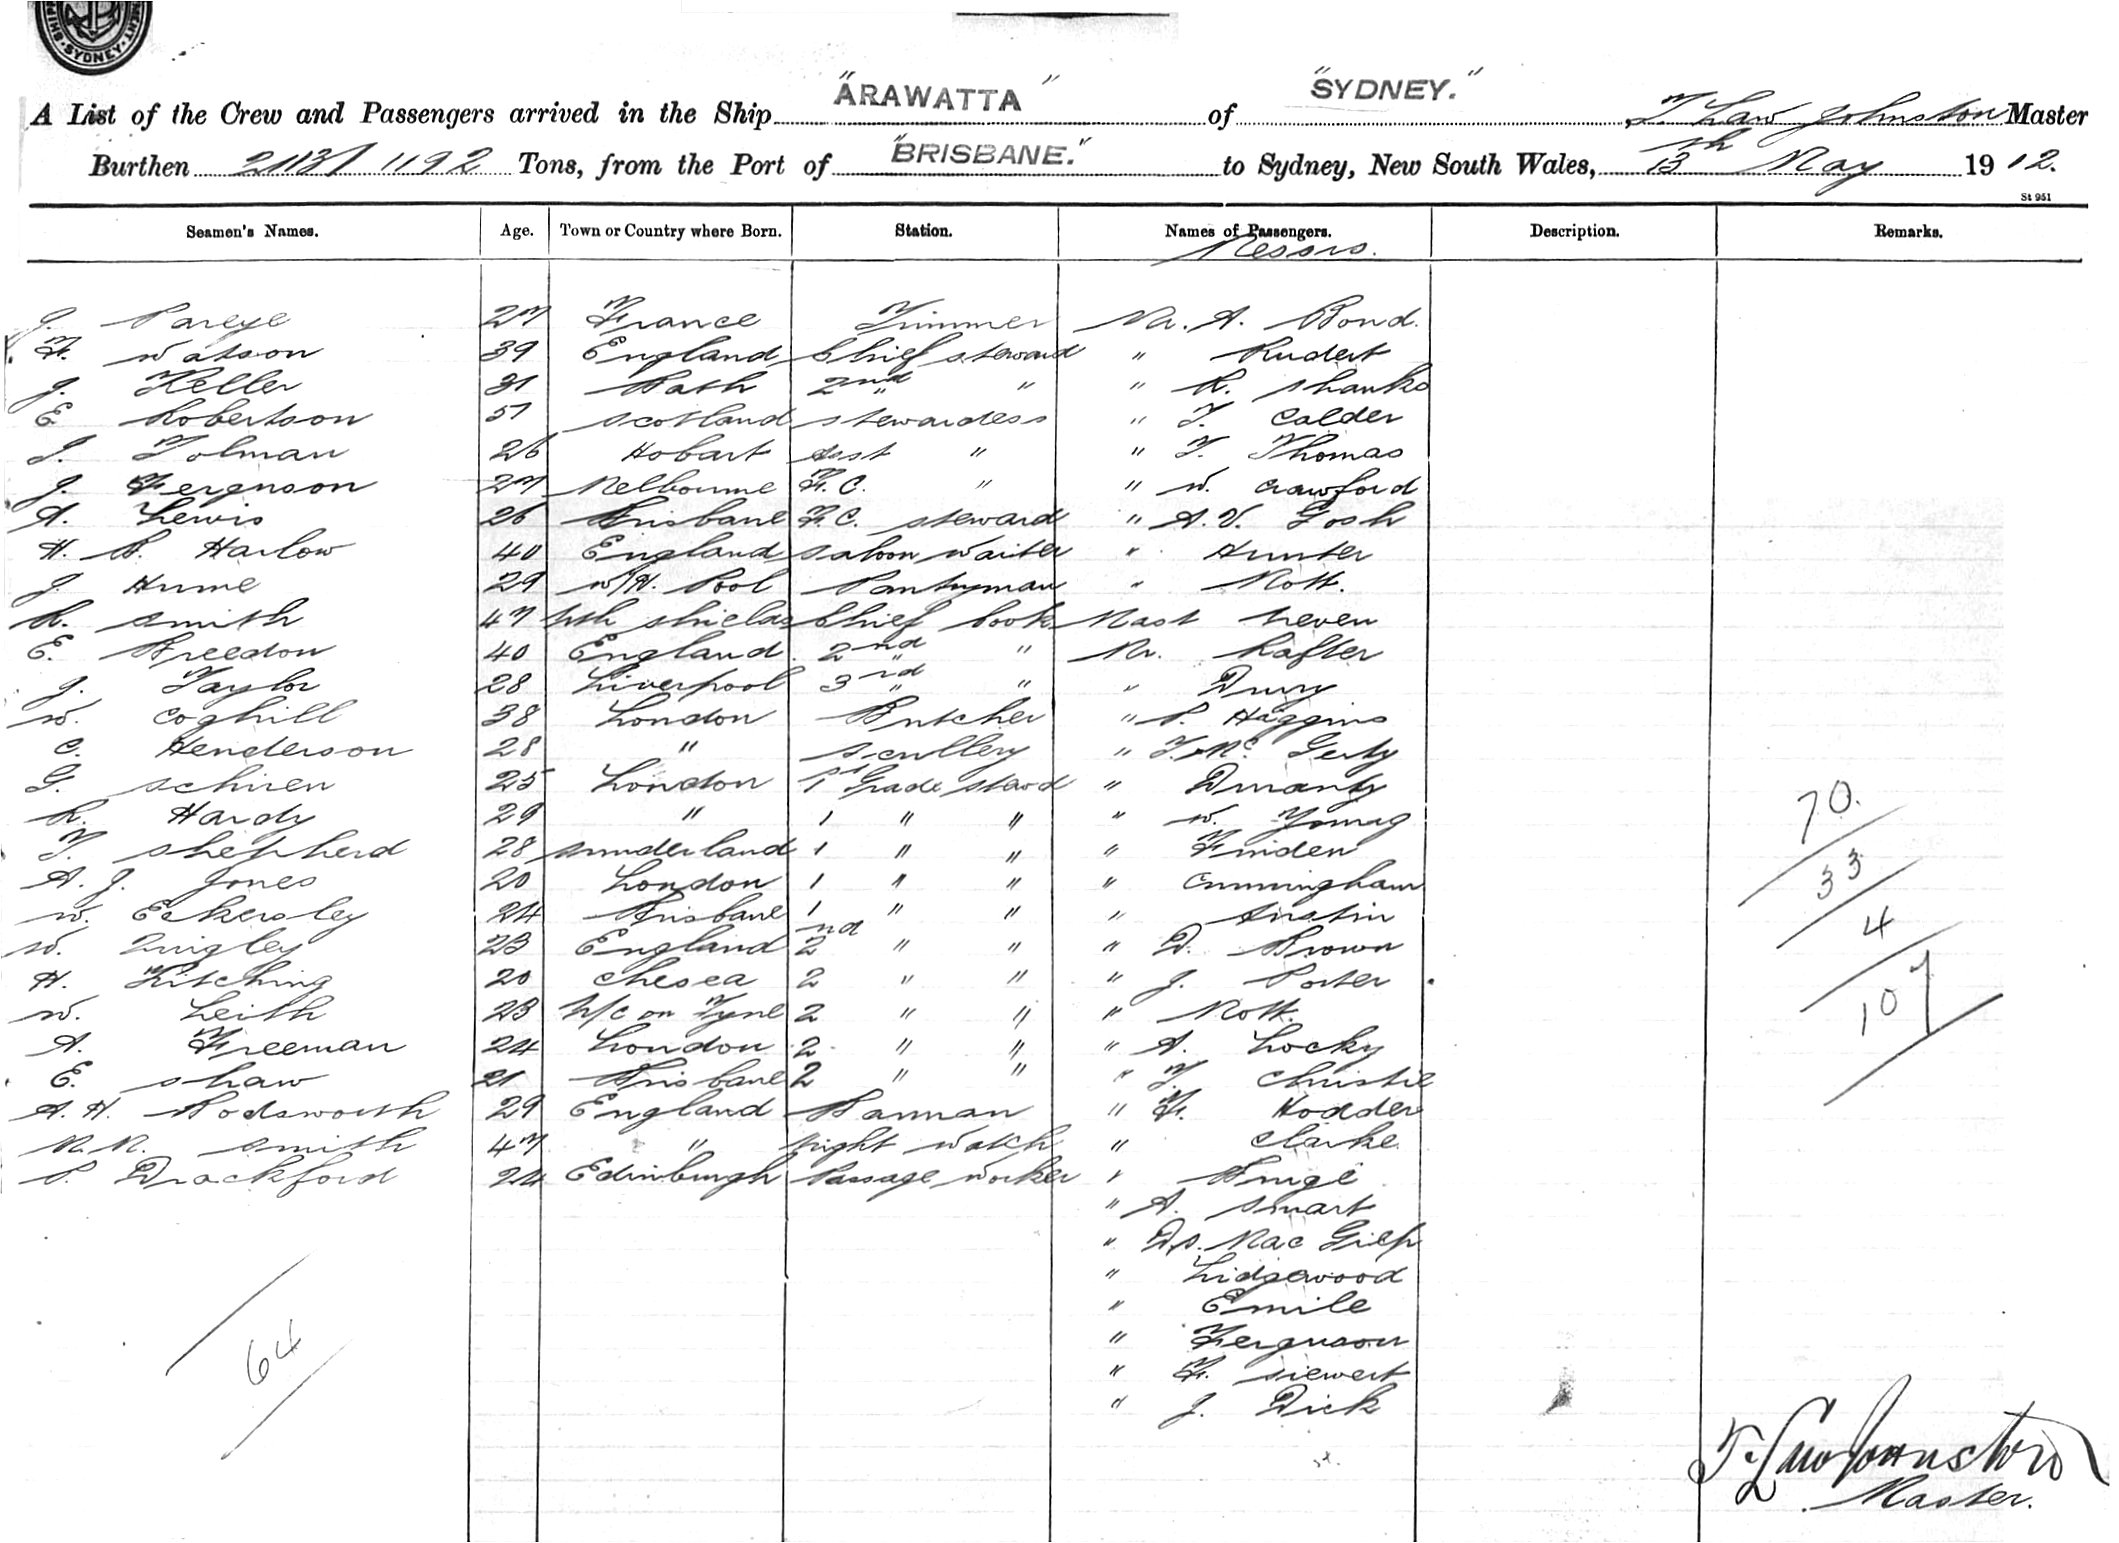 SYDNEY
"ARAWATTA" "SYDNEY."
A List of the Crew and Passengers arrived in the Ship of , T. Law Johnston Master
Burthen 2113/1192 Tons, from the Port of "BRISBANE." to Sydney, New South Wales, 13th May 1912.
St 951
Seamen's Names. Age. Town or Country where Born. Station. Names of Passengers. Description. Remarks.
Messrs.
J. Pareye 27 France Trimmer Mr. A. Bond.
F. Watson 39 England Chief steward " Rudert
J. Keller 31 Bath 2nd " " R. Shanks
E Robertson 51 Scotland Stewardess " T. Calder
J. Tolman 26 Hobart Asst " " T. Thomas
J. Ferguson 27 Melbourne F.C. " " W. Crawford
A. Lewis 26 Brisbane F.C. steward " A.V. Gosh
H. B. Harlow 40 England Saloon Waiter " Hunter
J. Hume 29 W/H. Pool Pantryman " Mott.
R. Smith 47 Nth Shields Chief Cook Mast Neven
E. Breedon 40 England 2nd " Mr. Rafter
J. Taylor 28 Liverpool 3rd " " Drury
W. Coghill 38 London Butcher " P. Higgins
C. Henderson 28 " Scullery " T. Mc Gerty
G. Schiren 25 London 1st Grade Steward " Durant
R. Hardy 29 " 1 " " " W. Young
T. Shepherd 28 Sunderland 1 " " " Finden
A. J. Jones 20 London 1 " " " Cunningham
W. Eckersley 24 Brisbane 1 " " " Austin
W. Quigley 23 England 2nd " " " D. Brown
H. Kitching 20 Chesea 2 " " " J. Porter
W. Leith 23 N/C on Tyne 2 " " " Mott.
A. Freeman 24 London 2 " " " A. Locky
E. Shaw 21 Brisbane 2 " " " T. Christie
A. H. Rodsworth 29 England Barman " F. Hodder
M.M. Smith 47 " Night Watch " Clarke
P. Drackford 24 Edinburgh Passage Worker " Bruge
" A. Smart
" D.S. Mac Gilp
" Lidgewood
" Emile
" Ferguson
" F. Siewert
" J. Dick
64
70.
33
4
107
T. Law Johnston
Master.